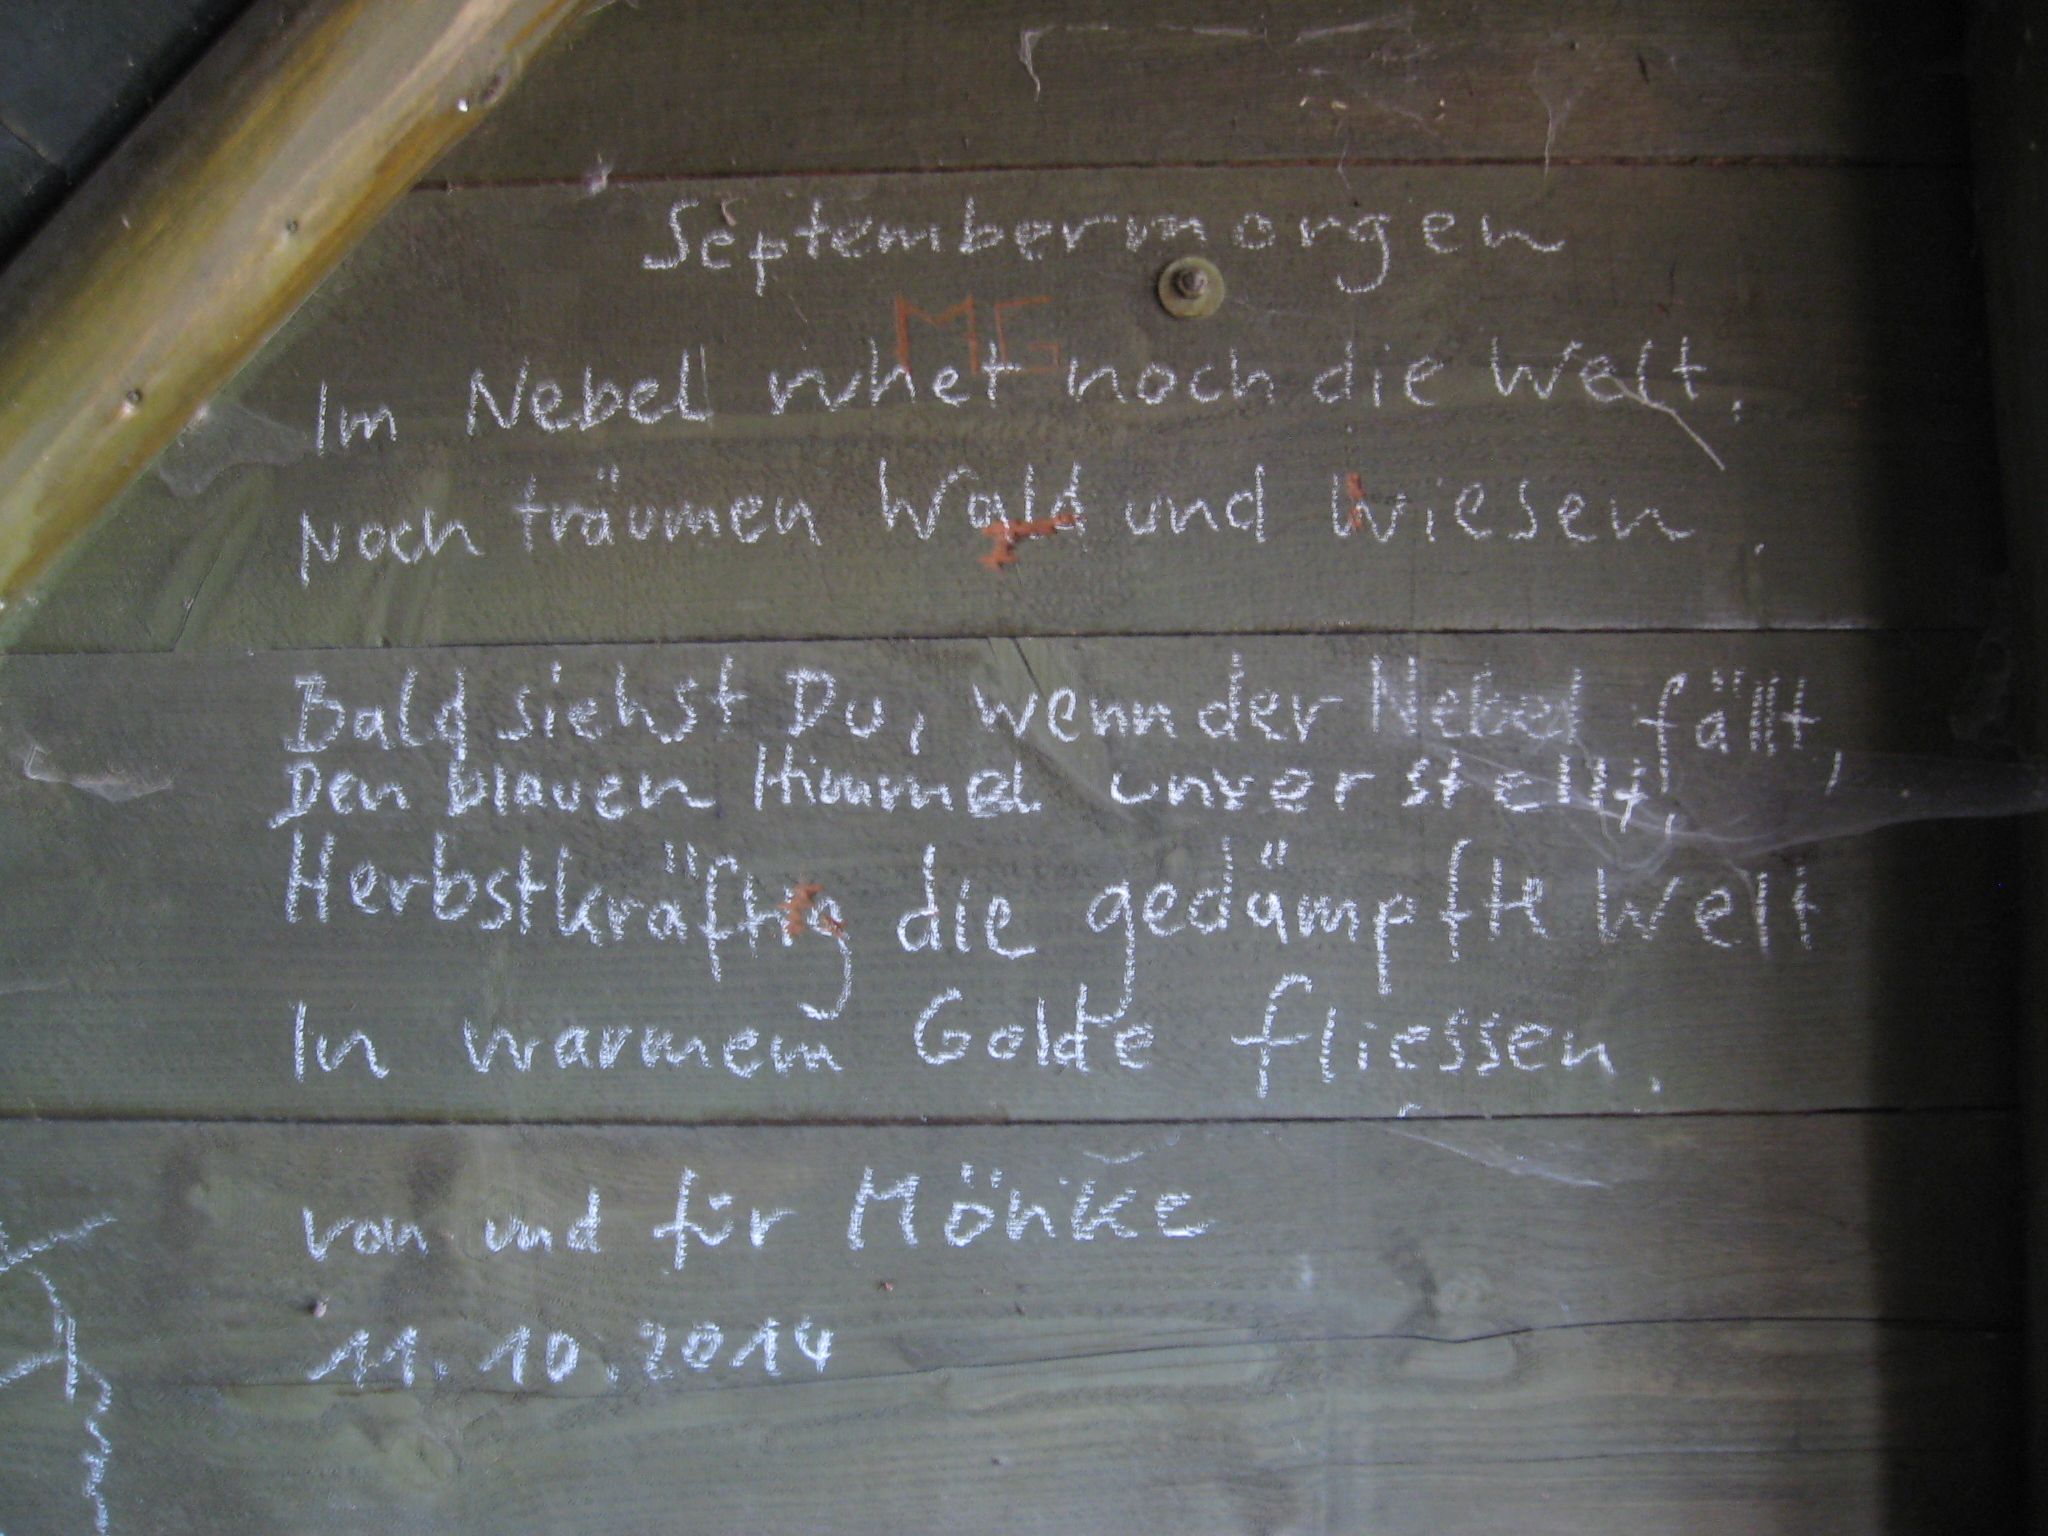 Septembermorgen
MG
Im Nebel ruhet noch die Welt.
Noch träumen Wald und Wiesen.
Bald siehst Du, wenn der Nebel fällt,
Den blauen Himmel unverstellt,
Herbstkräftig die gedämpfte Welt
In warmem Golde fliessen.
von und für Mönke
11.10.2014